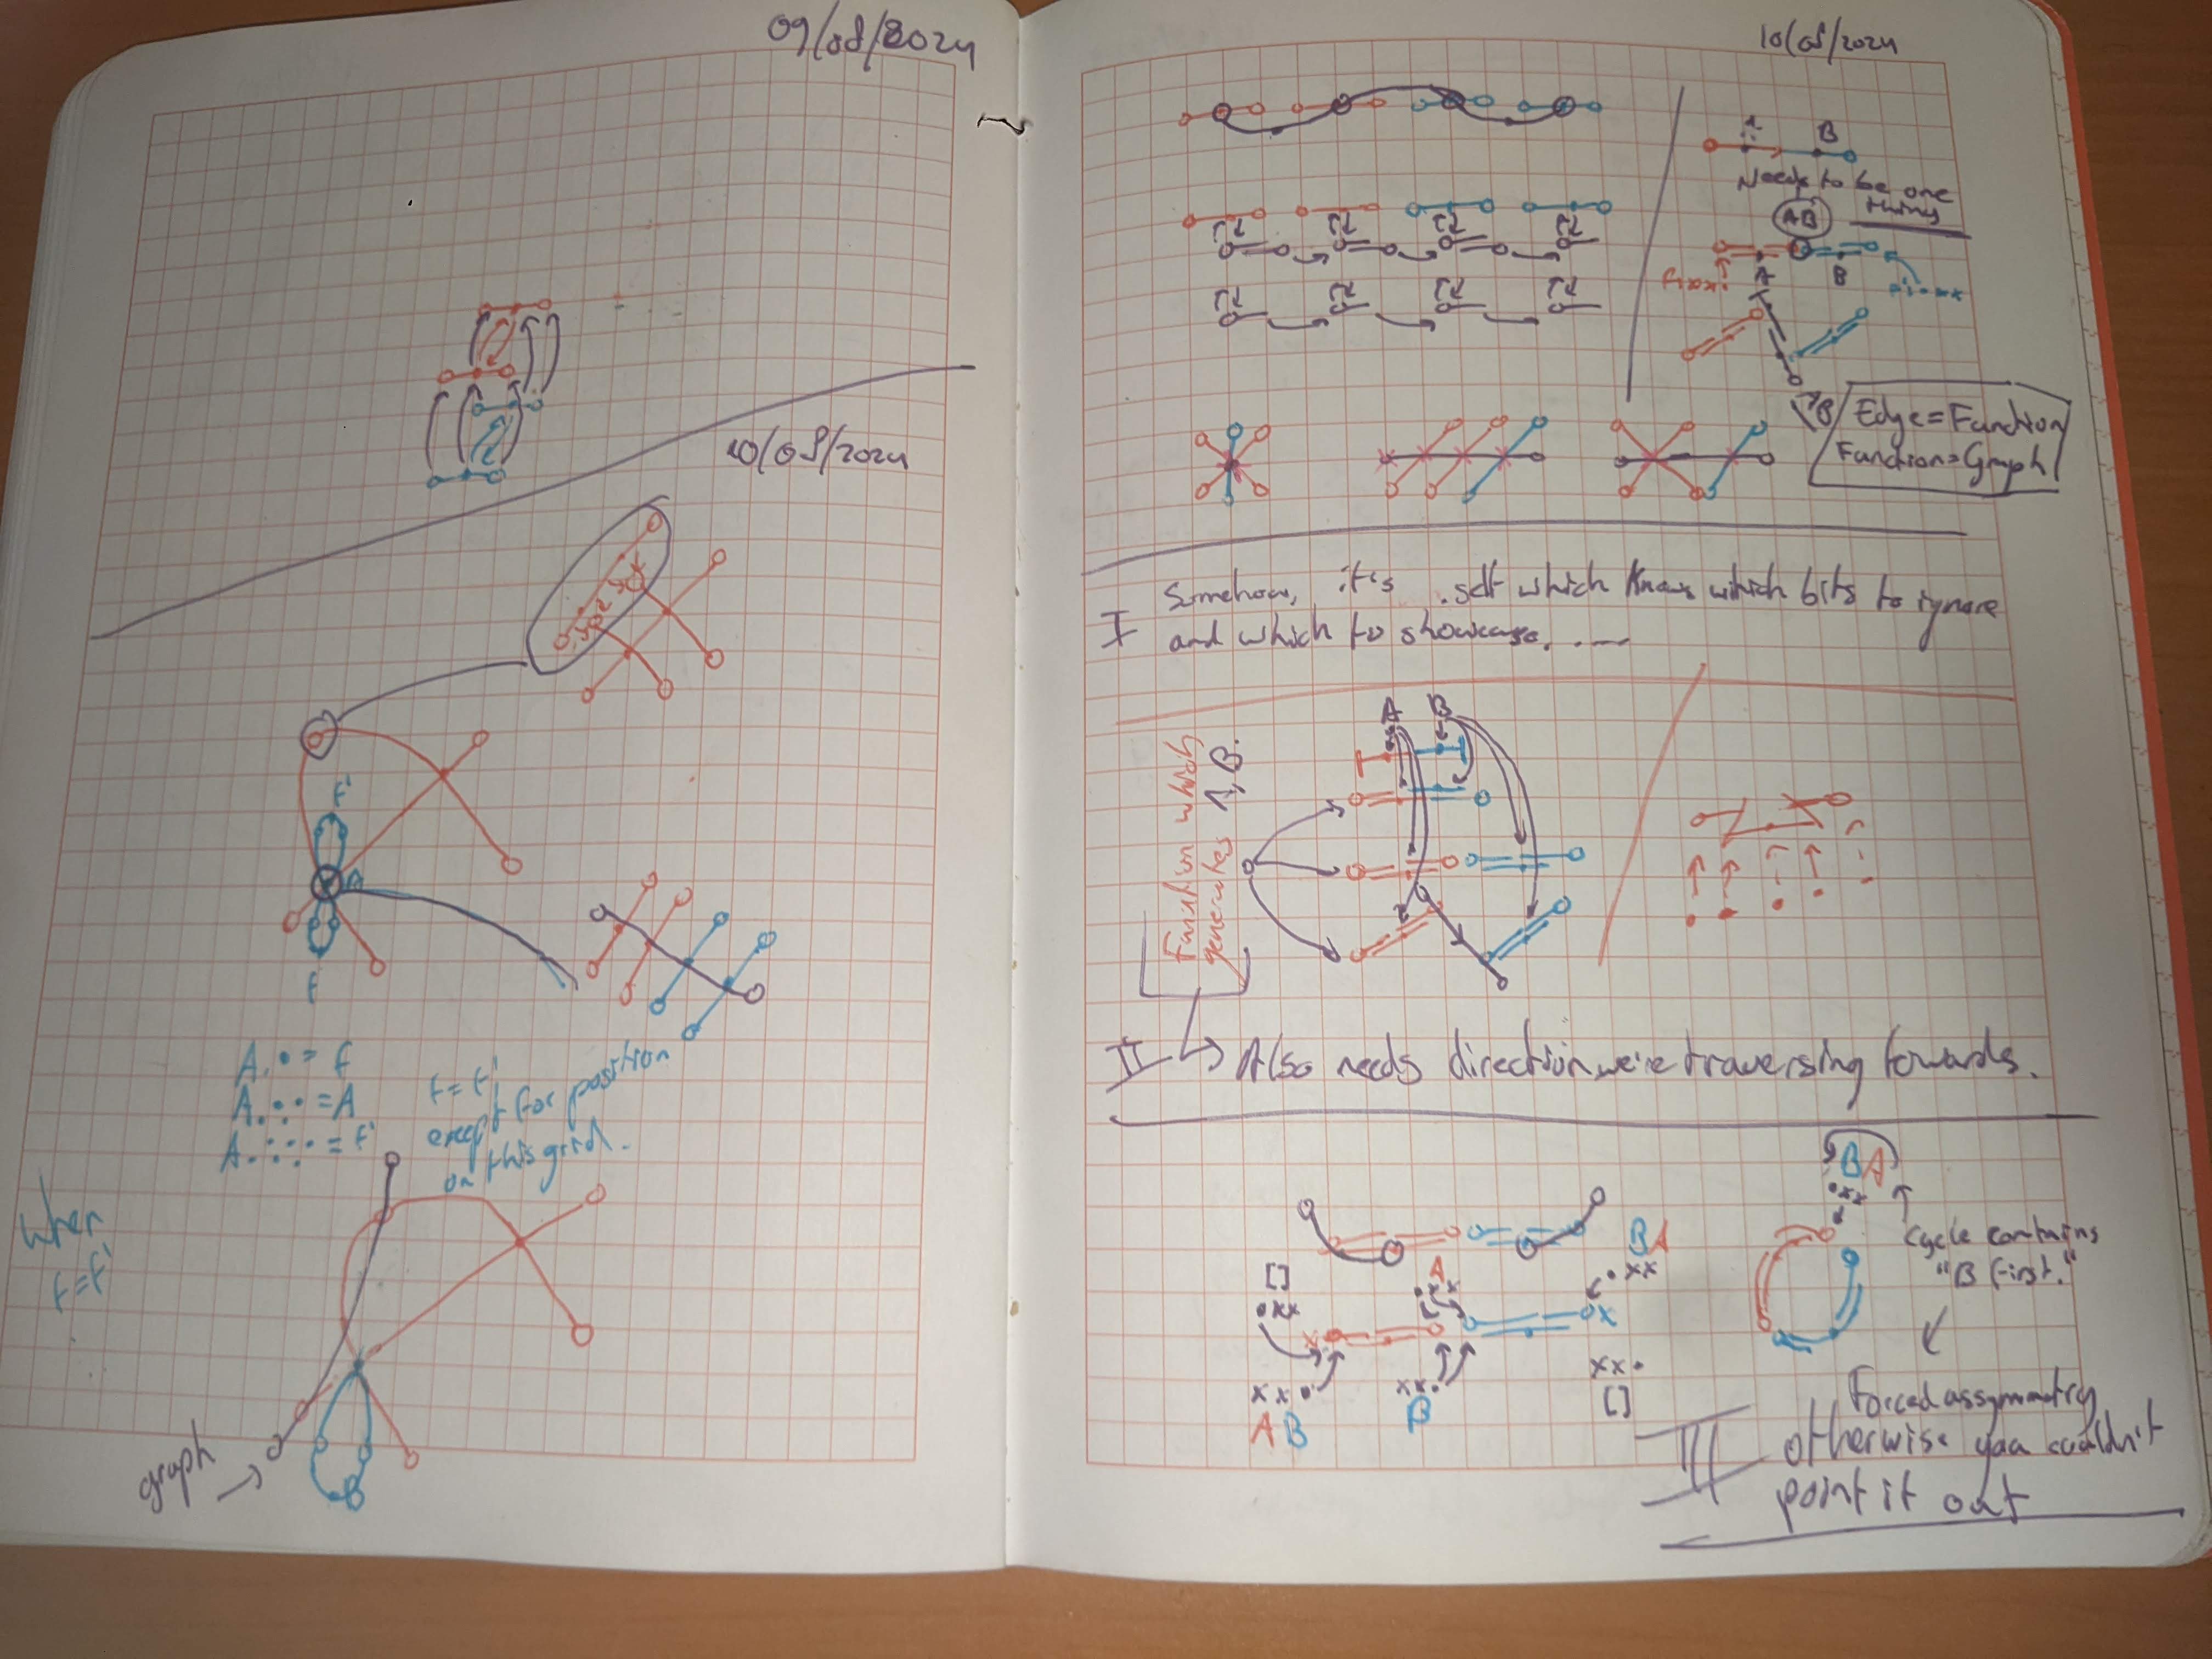 09/08/2024
10/08/2024
F'
A
F
A.• = F
A.•• = A
A.••• = F'
F = F'
except for position
on this grid.
When
F=F'
graph
10/08/2024
A
B
Needs to be one
thing
AB
A
B
B
Edge = Function
Function = Graph
Somehow, it's .self which knows which bits to ignore
I
and which to showcase. . —
A B
Function which
generates A, B.
II Also needs direction we're traversing towards.
BA
•xx
Cycle contains
"B first."
BA
•xx
A
•xx
[]
•xx
x
x
xx•
AB
xx•
B
xx•
[]
Forced assymmetry
III otherwise you couldn't
point it out